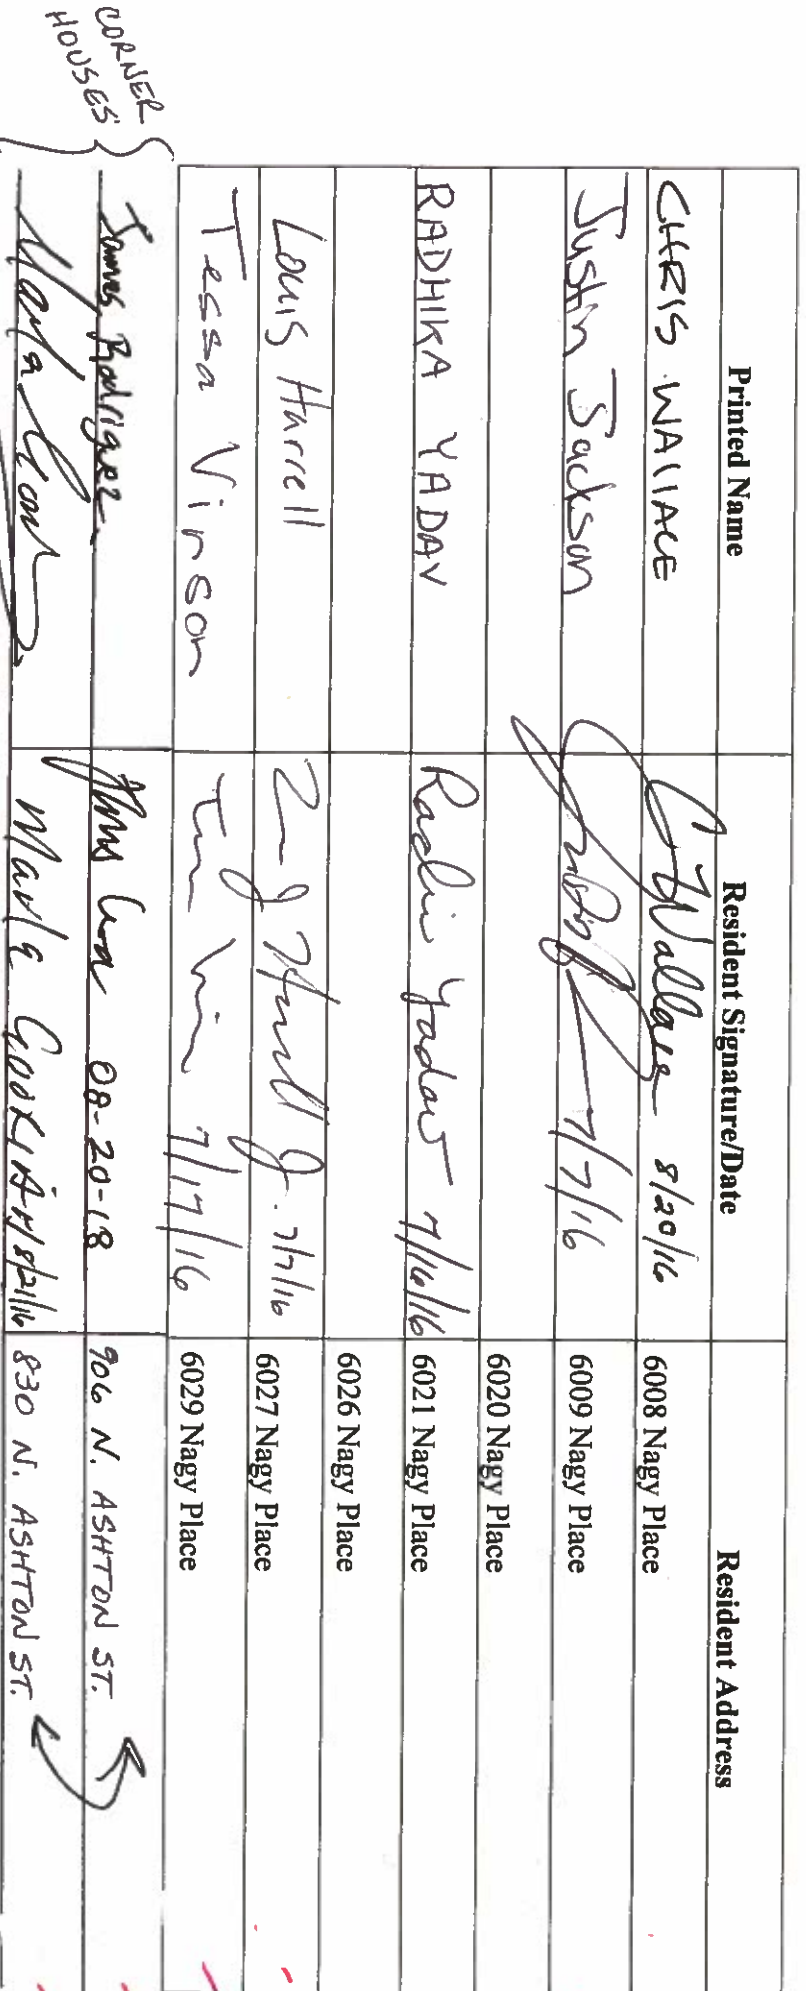 Printed Name Resident Signature/Date Resident Address
CHRIS WALLACE C Wallace 8/20/16 6008 Nagy Place
Justin Jackson 7/7/16 6009 Nagy Place
6020 Nagy Place
RADHIKA YADAV Yadav 7/16/16 6021 Nagy Place
6026 Nagy Place
Louis Harrell 7/7/16 6027 Nagy Place
Tessa Vinson 7/17/16 6029 Nagy Place
CORNER
HOUSES
James Rodriguez 08-20-18 906 N. ASHTON ST.
Marla Marla 8/21/16 830 N. ASHTON ST.